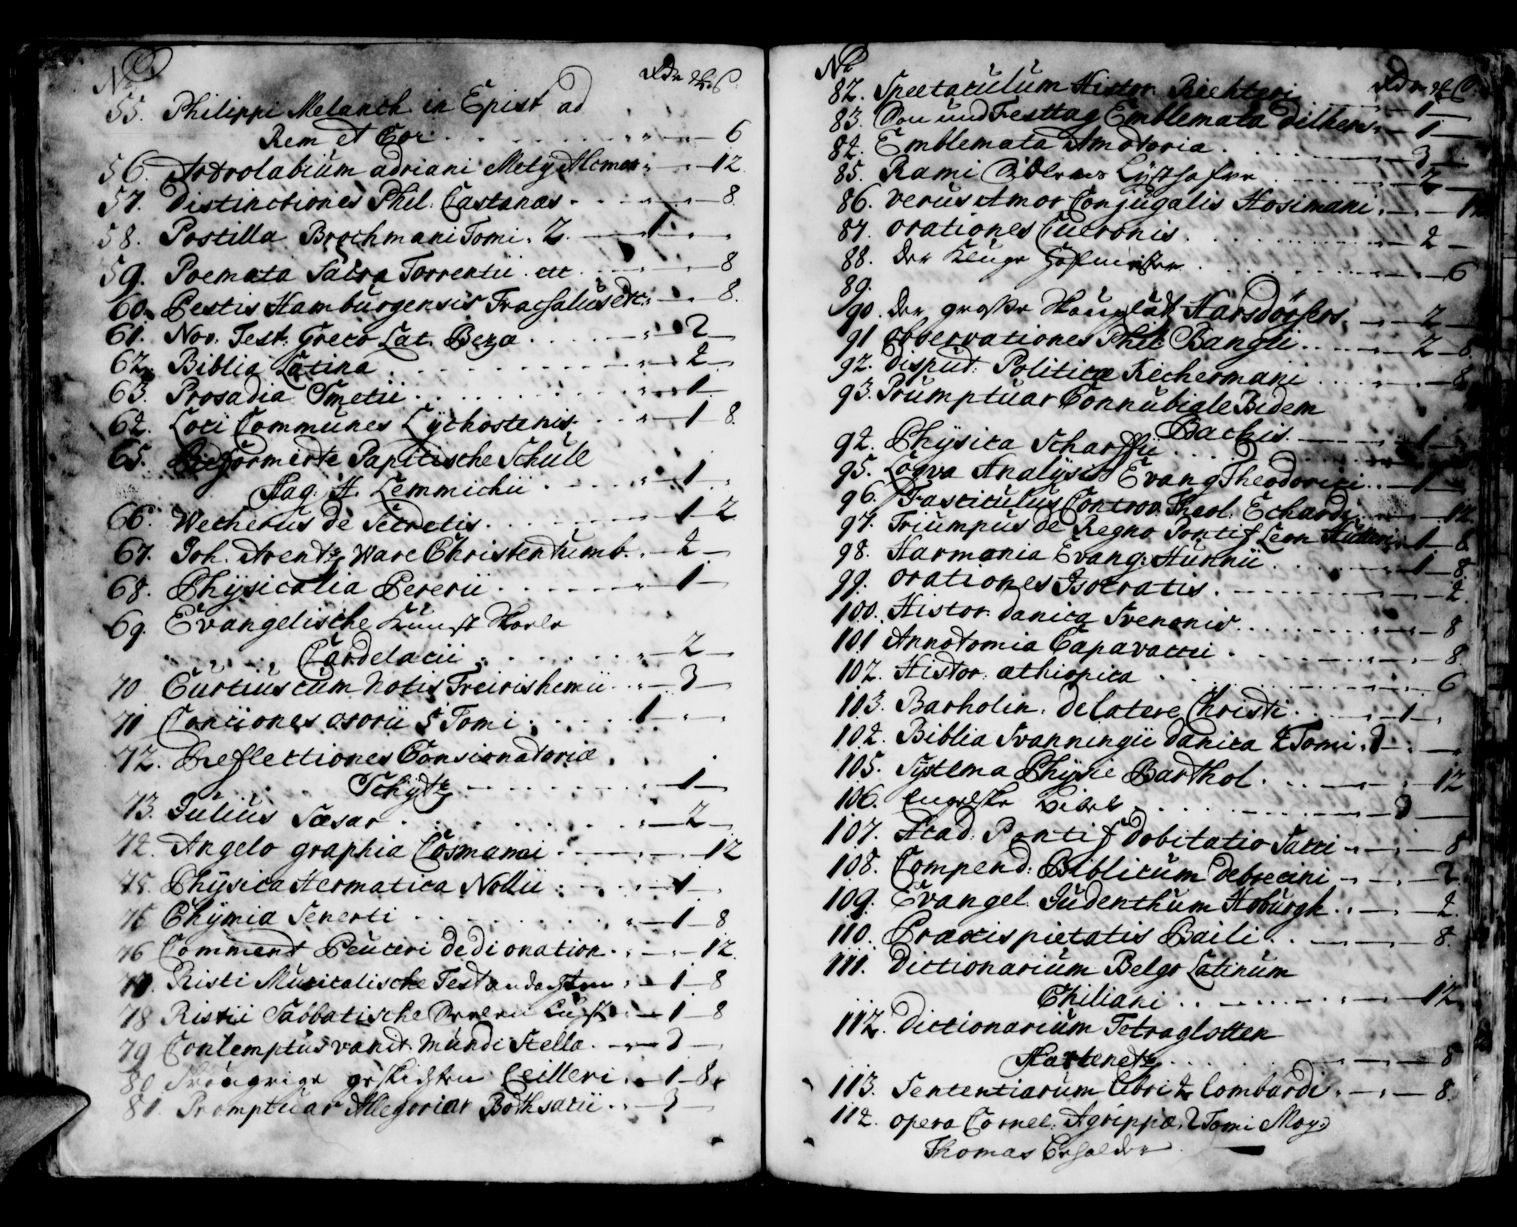 No
55. Philippi Melanch in Epist ad
Rem et Cor . . . 6
56. Astrolabium adriani Mety Alcmar . . . 12
57. Distinctiones Phil. Castanæs . . . 8.
58. Postilla Brochmani Tomi. 2 — 1 —
59. Poemata Sacra Torrentii . . . 8
60. Pestis Hamburgensis . . . 8.
61. Nov. Test. Greco Lat. Beza . . . 2 —
62. Biblia Latina . . . 2 —
63. Prosadia Smetii . . . 1 —
64. Loci Communes Lychostenis . . . 1 — 8.
65. Reformerte Papitische Schule
Mag. H. Lemmichii . . . 1 —
66. Weckerus de Secretis . . . 1 — 2
67. Joh. Arentz Ware Christenthumb . . . 2 —
68. Physicalia Pererii . . . 1 —
69. Evangelische Kunst
Cardelucii . . . 2 —
70. Curtius cum Notis Freirishemii . . . 3 —
71 Conciones osorii 5 Tomi . . . 1
72. Reflectiones Consionatoriæ
Schytz . . . 1 —
73. Julius Sæsar . . . 2 —
74. Angelo graphia Cosmanni . . . 12
75. Physica Hermatica Nollii . . . 1
76 Chymia Senerti . . . 1 — 8
76 Comment Peuceri de divination . . . 12.
77. Risti Musicalische Fest andachten . . . 1 — 8
78 Ristii Sabbatische Seelen Lust . . . 1 — 8
79 Contemptus vanit. mundi Stella . . . 3 —
80 geskichten Ceilleri . . . 1 — 8.
81. Promptuar Allegoriar Bothsacii . . . 3 —
No
82. Spectaculum Histor. Richteri . . . 1 —
83. Son und Festtag Emblemata dilhers . . . 1 —
84. Emblemata Amatoria . . . 3 —
85. Rami . . . 2 —
86. Verus Amor Conjugalis Hosimani . . . 1
87. orationes Cicronis . . . 2 —
88. der kluge Hofmeister . . . 6
89.
90. der große Harsdörfers . . . 2 —
91 observationes Phil. Bangii . . . 2 — 8
92. Disput. Politicæ Kechermani . . . 8
93. Prumptuar Connubiale Bidem
Backis . . . 1 —
94. Physica Scharffii
95. Logva Analysis Evang Theodorici . . . 1
96. Fasciculus Controv. Theol. Echardi . . . 12
97. Triumpus de Regno Pontif Leon Hutteri . . . 1 — 8
98. Harmonia Evang: Hunnii . . . 1 — 8
99. orationes Isocratis . . . 2
100. Histor danica Svenonis . . . 8
101 Annotomia Capavaccii . . . 8.
102. Histor: athiopica . . . 6
103. Barholin. de latere Christi . . . 1 —
104. Biblia Svanningii danica 2 Tomi. 3 —
105. Systema Physic Barthol . . . 12
106. Engelske Bibel . . . 3 —
107. Acad. Pontif dobitatio Sacci . . . 8
108. Compend: Biblicum Debrecini . . . 2
109. Evangel. Judenthum Hoburgk . . . 2.
110. Praxis pietatis Baili . . . 8.
111. Dictionarium Belgo Latinum
Chiliani . . . 12
112. Dictionarium Tetraglotten
Martenetz . . . 8
113. Sententiarum libri 4 lombardi . . . 8.
114. opera Cornel. Agrippæ. 2 Tomi Moys
Thomas